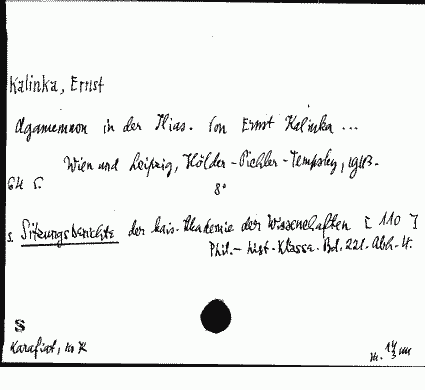 Kalinka, Ernst
Agamemnon in der Ilias. Von Ernst Kalinka ...
Wien und Leipzig, Hölder-Pichler-Tempsky, 1943.
64 S. 8°
s. Sitzungsberichte der kais. Akademie der Wissenschaften [110]
Phil.-hist. Klasse. Bd. 221. Abh. 4.
S
Karafiat,